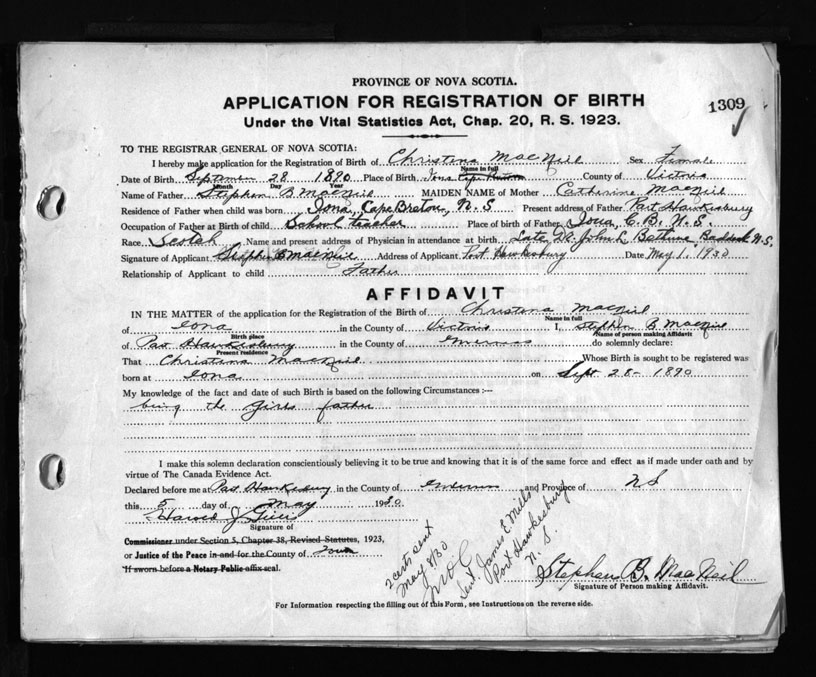 PROVINCE OF NOVA SCOTIA.
APPLICATION FOR REGISTRATION OF BIRTH
1309
Under the Vital Statistics Act, Chap. 20, R. S. 1923.
TO THE REGISTRAR GENERAL OF NOVA SCOTIA:
I hereby make application for the Registration of Birth of Christena MacNeil Sex Female
Name in full
Date of Birth September 28 1890 Place of Birth Iona County of Victoria
Month Day Year
Name of Father Stephen B MacNeil MAIDEN NAME of Mother Catherine MacNeil
Residence of Father when child was born Iona, Cape Breton, N. S Present address of Father Port Hawkesbury
Occupation of Father at Birth of child School teacher Place of birth of Father Iona, C. B. N. S.
Race Scotch Name and present address of Physician in attendance at birth Late Dr. John L. Bethune, Baddeck N.S.
Signature of Applicant Stephen B MacNeil Address of Applicant Port Hawkesbury Date May 1. 1930
Relationship of Applicant to child Father
AFFIDAVIT
IN THE MATTER of the application for the Registration of the Birth of Christena MacNeil
Name in full
of Iona in the County of Victoria I, Stephen B. MacNeil
Birth place Name of person making Affidavit
of Port Hawkesbury in the County of Inverness do solemnly declare:
Present residence
That Christena MacNeil Whose Birth is sought to be registered was
born at Iona on Sept 28 - 1890
My knowledge of the fact and date of such Birth is based on the following Circumstances :—
being the girls father
I make this solemn declaration conscientiously believing it to be true and knowing that it is of the same force and effect as if made under oath and by
virtue of The Canada Evidence Act.
Declared before me at Port Hawkesbury in the County of Inverness and Province of NS
this 5 day of May 1930.
J.
Signature of
Commissioner under Section 5, Chapter 38, Revised Statutes, 1923,
or Justice of the Peace in and for the County of
"If sworn before a Notary Public affix seal.
2 certs sent
May 8/30
Sent. James E Mills
Port Hawkesbury
N. S.
Stephen B. MacNeil
Signature of Person making Affidavit.
For Information respecting the filling out of this Form, see Instructions on the reverse side.